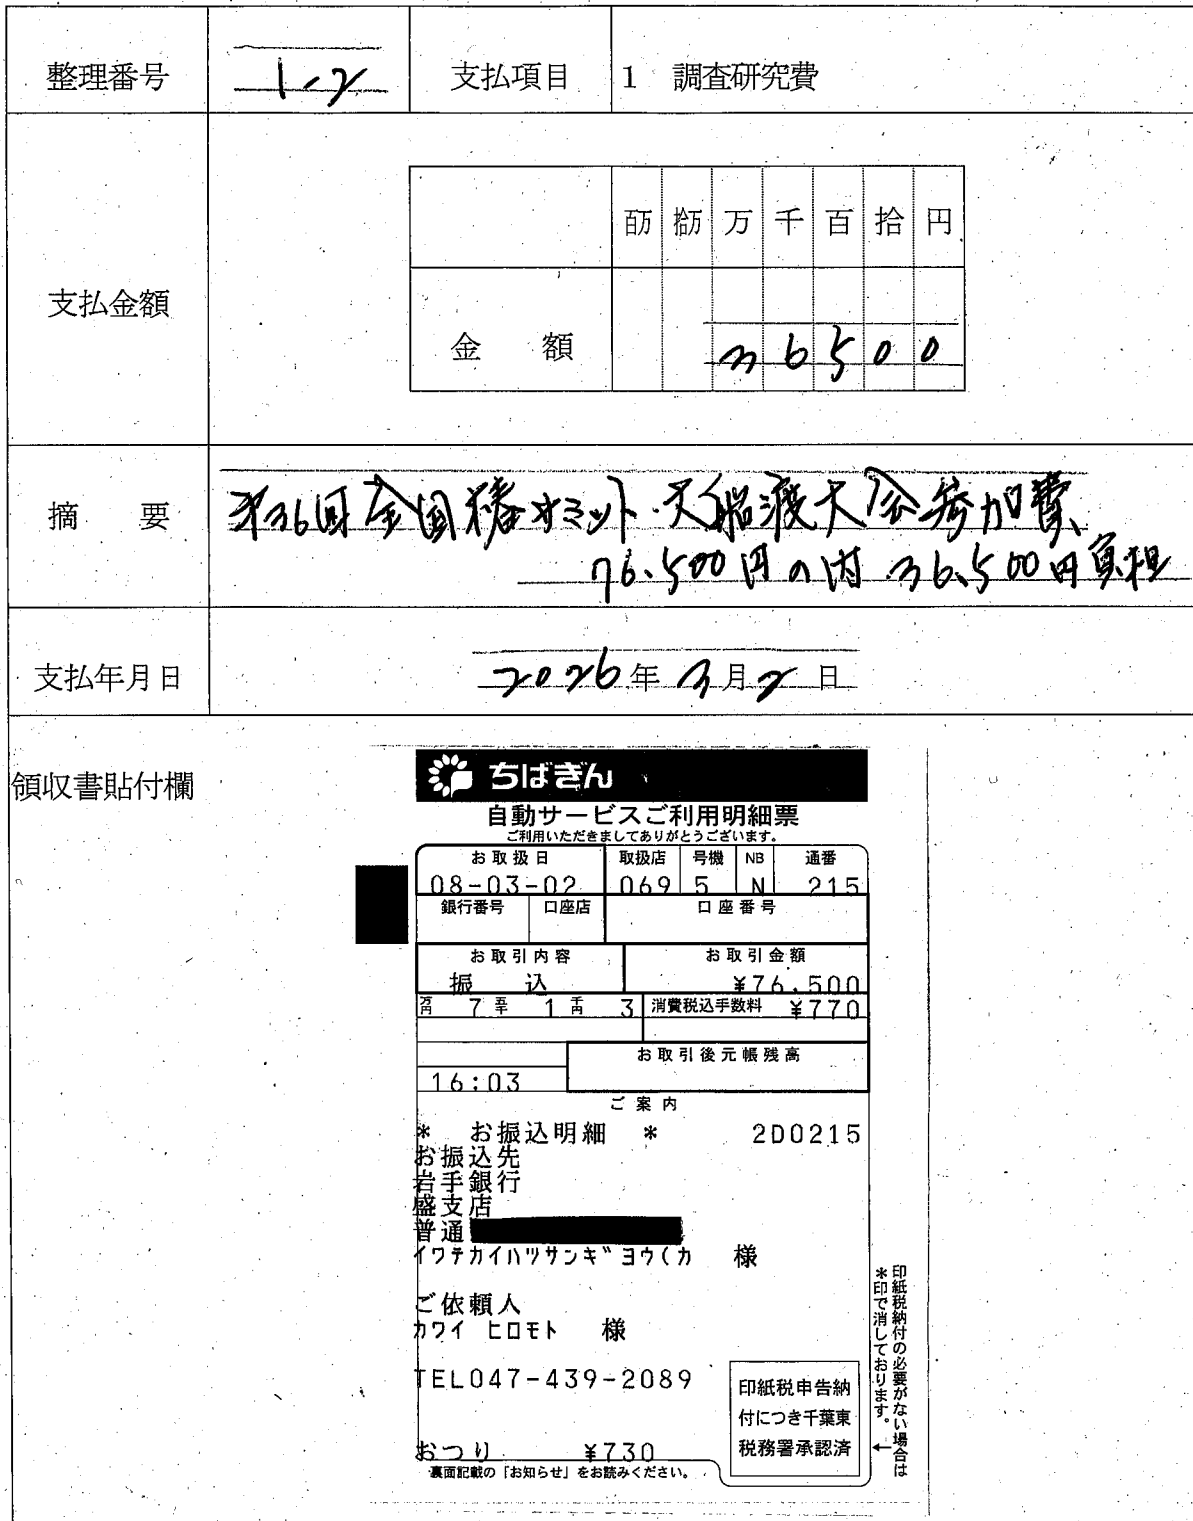 整理番号 1-2 支払項目 1 調査研究費
百万 拾万 万 千 百 拾 円
支払金額
金額 36500
摘要 第36回全国椿サミット大船渡大会参加費、
76,500円の内 36,500円負担
支払年月日 2026年3月2日
領収書貼付欄
ちばぎん
自動サービスご利用明細票
ご利用いただきましてありがとうございます。
お取扱日 取扱店 号機 NB 通番
08-03-02 069 5 N 215
銀行番号 口座店 口座番号
お取引内容 お取引金額
振込 ¥76,500
万円 7 五千 1 千円 3 消費税込手数料 ¥770
お取引後元帳残高
16:03
ご案内
* お振込明細 * 2D0215
お振込先
岩手銀行
盛支店
普通
イワテカイハツサンギヨウ(カ 様
ご依頼人
カワイ ヒロモト 様
TEL047-439-2089
おつり ¥730
裏面記載の「お知らせ」をお読みください。
印紙税申告納
付につき千葉東
税務署承認済
印紙税納付の必要がない場合は
*印で消しております。←